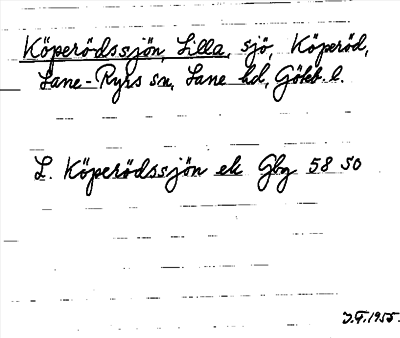 Köperödssjön, Lilla, sjö, Köperöd,
Lane-Ryrs sn, Lane hd, Göteb. l.
L. Köperödssjön ek Gbg 58 SO
J.F. 1955.